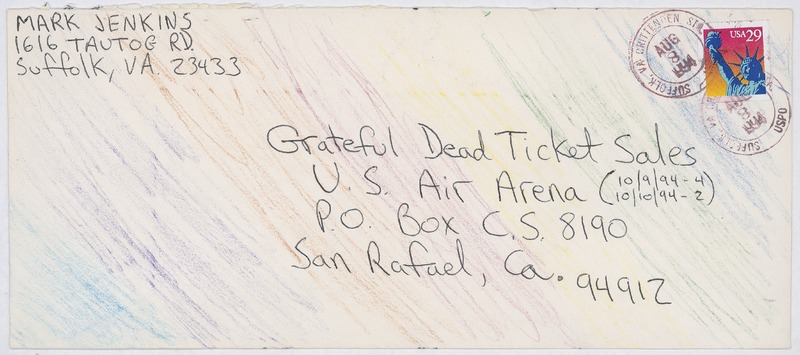 MARK JENKINS
1616 TAUTOG RD.
Suffolk, VA. 23433
SUFFOLK, VA CRITTENDEN STA
AUG
1994
USA 29
SUFFOLK, VA
USPO
Grateful Dead Ticket Sales
U.S. Air Arena (10/9/94-4)
(10/10/94-2)
P.O. Box C.S. 8190
San Rafael, Ca. 94912